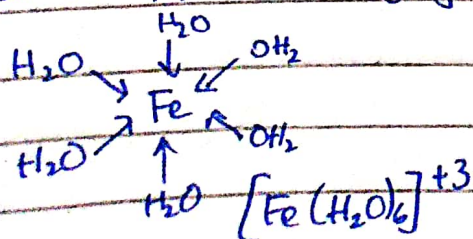 H₂O
H₂O OH₂
Fe
H₂O OH₂
H₂O [Fe(H₂O)₆]⁺³